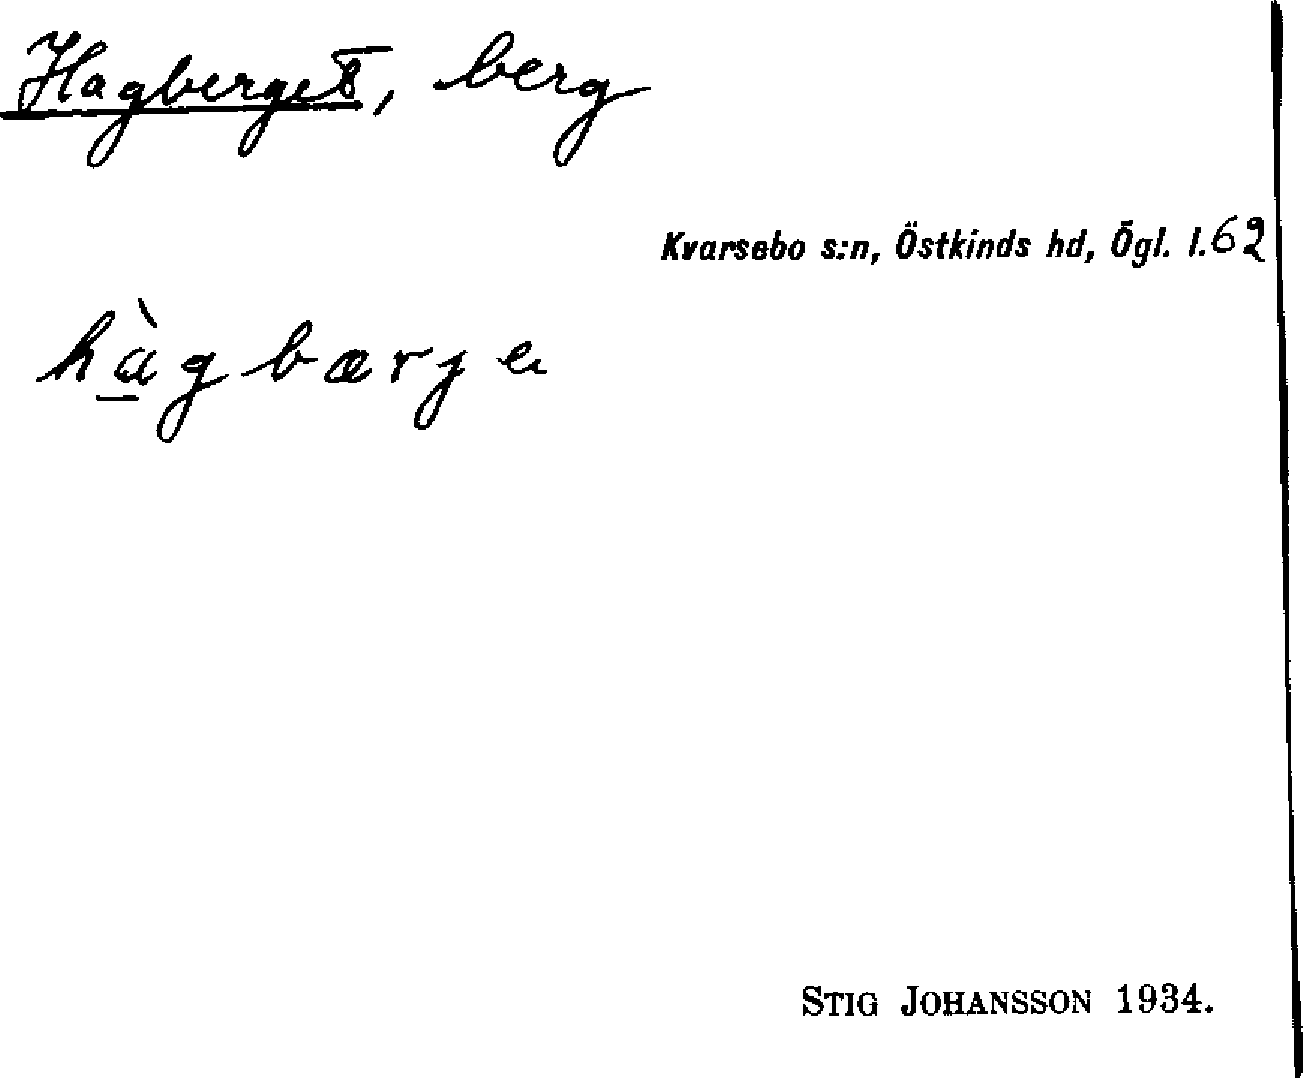 Hagberget, berg
Kvarsebo s:n, Östkinds hd, Ögl. l.62
hàgbærje
STIG JOHANSSON 1934.